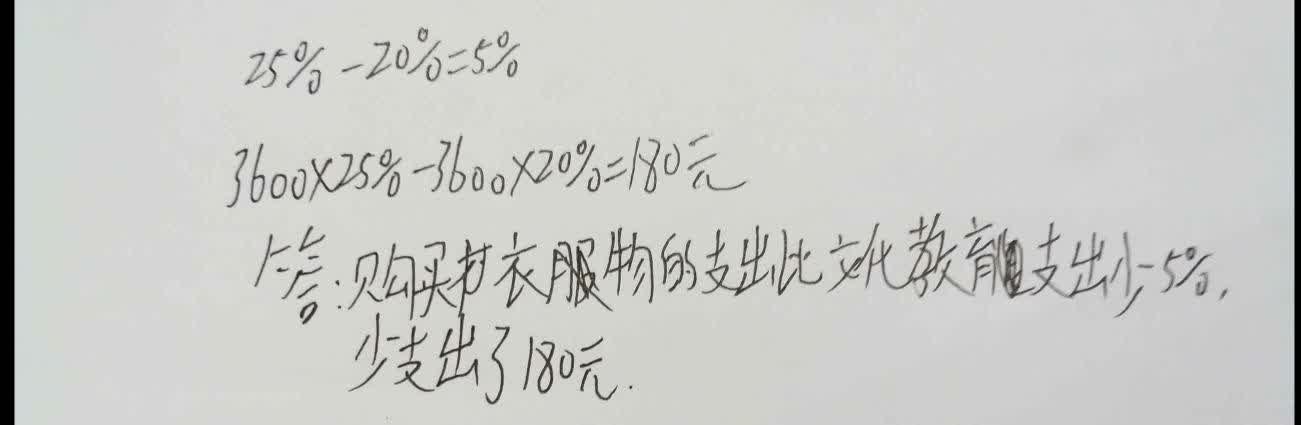 25%-20%=5%
3600×25%-3600×20%=180元
答:购买衣服物的支出比文化教育支出少5%,
少支出了180元.